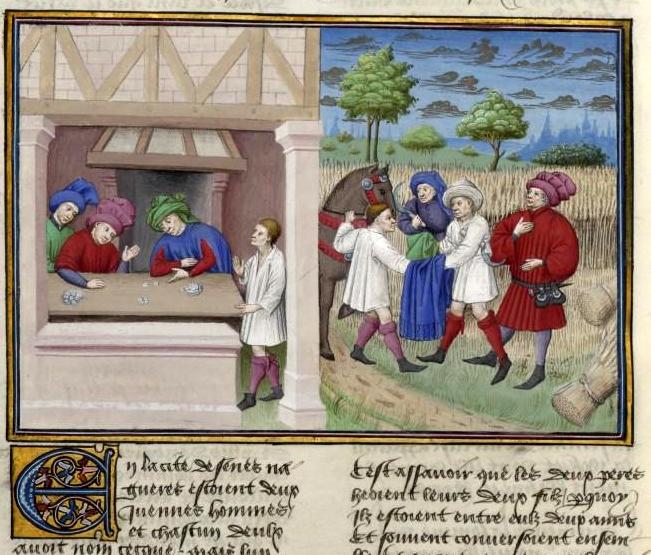 En la cite de senes na
gueres estoient deux
Juennes hommes
et chascun deulx
avoit nom cecque. mais lun
Cest assavoir que les deux peres
heoient leurs deux filz pquoy
Ilz estoient entre eulx deux amis
Et souvent conversoient ensem